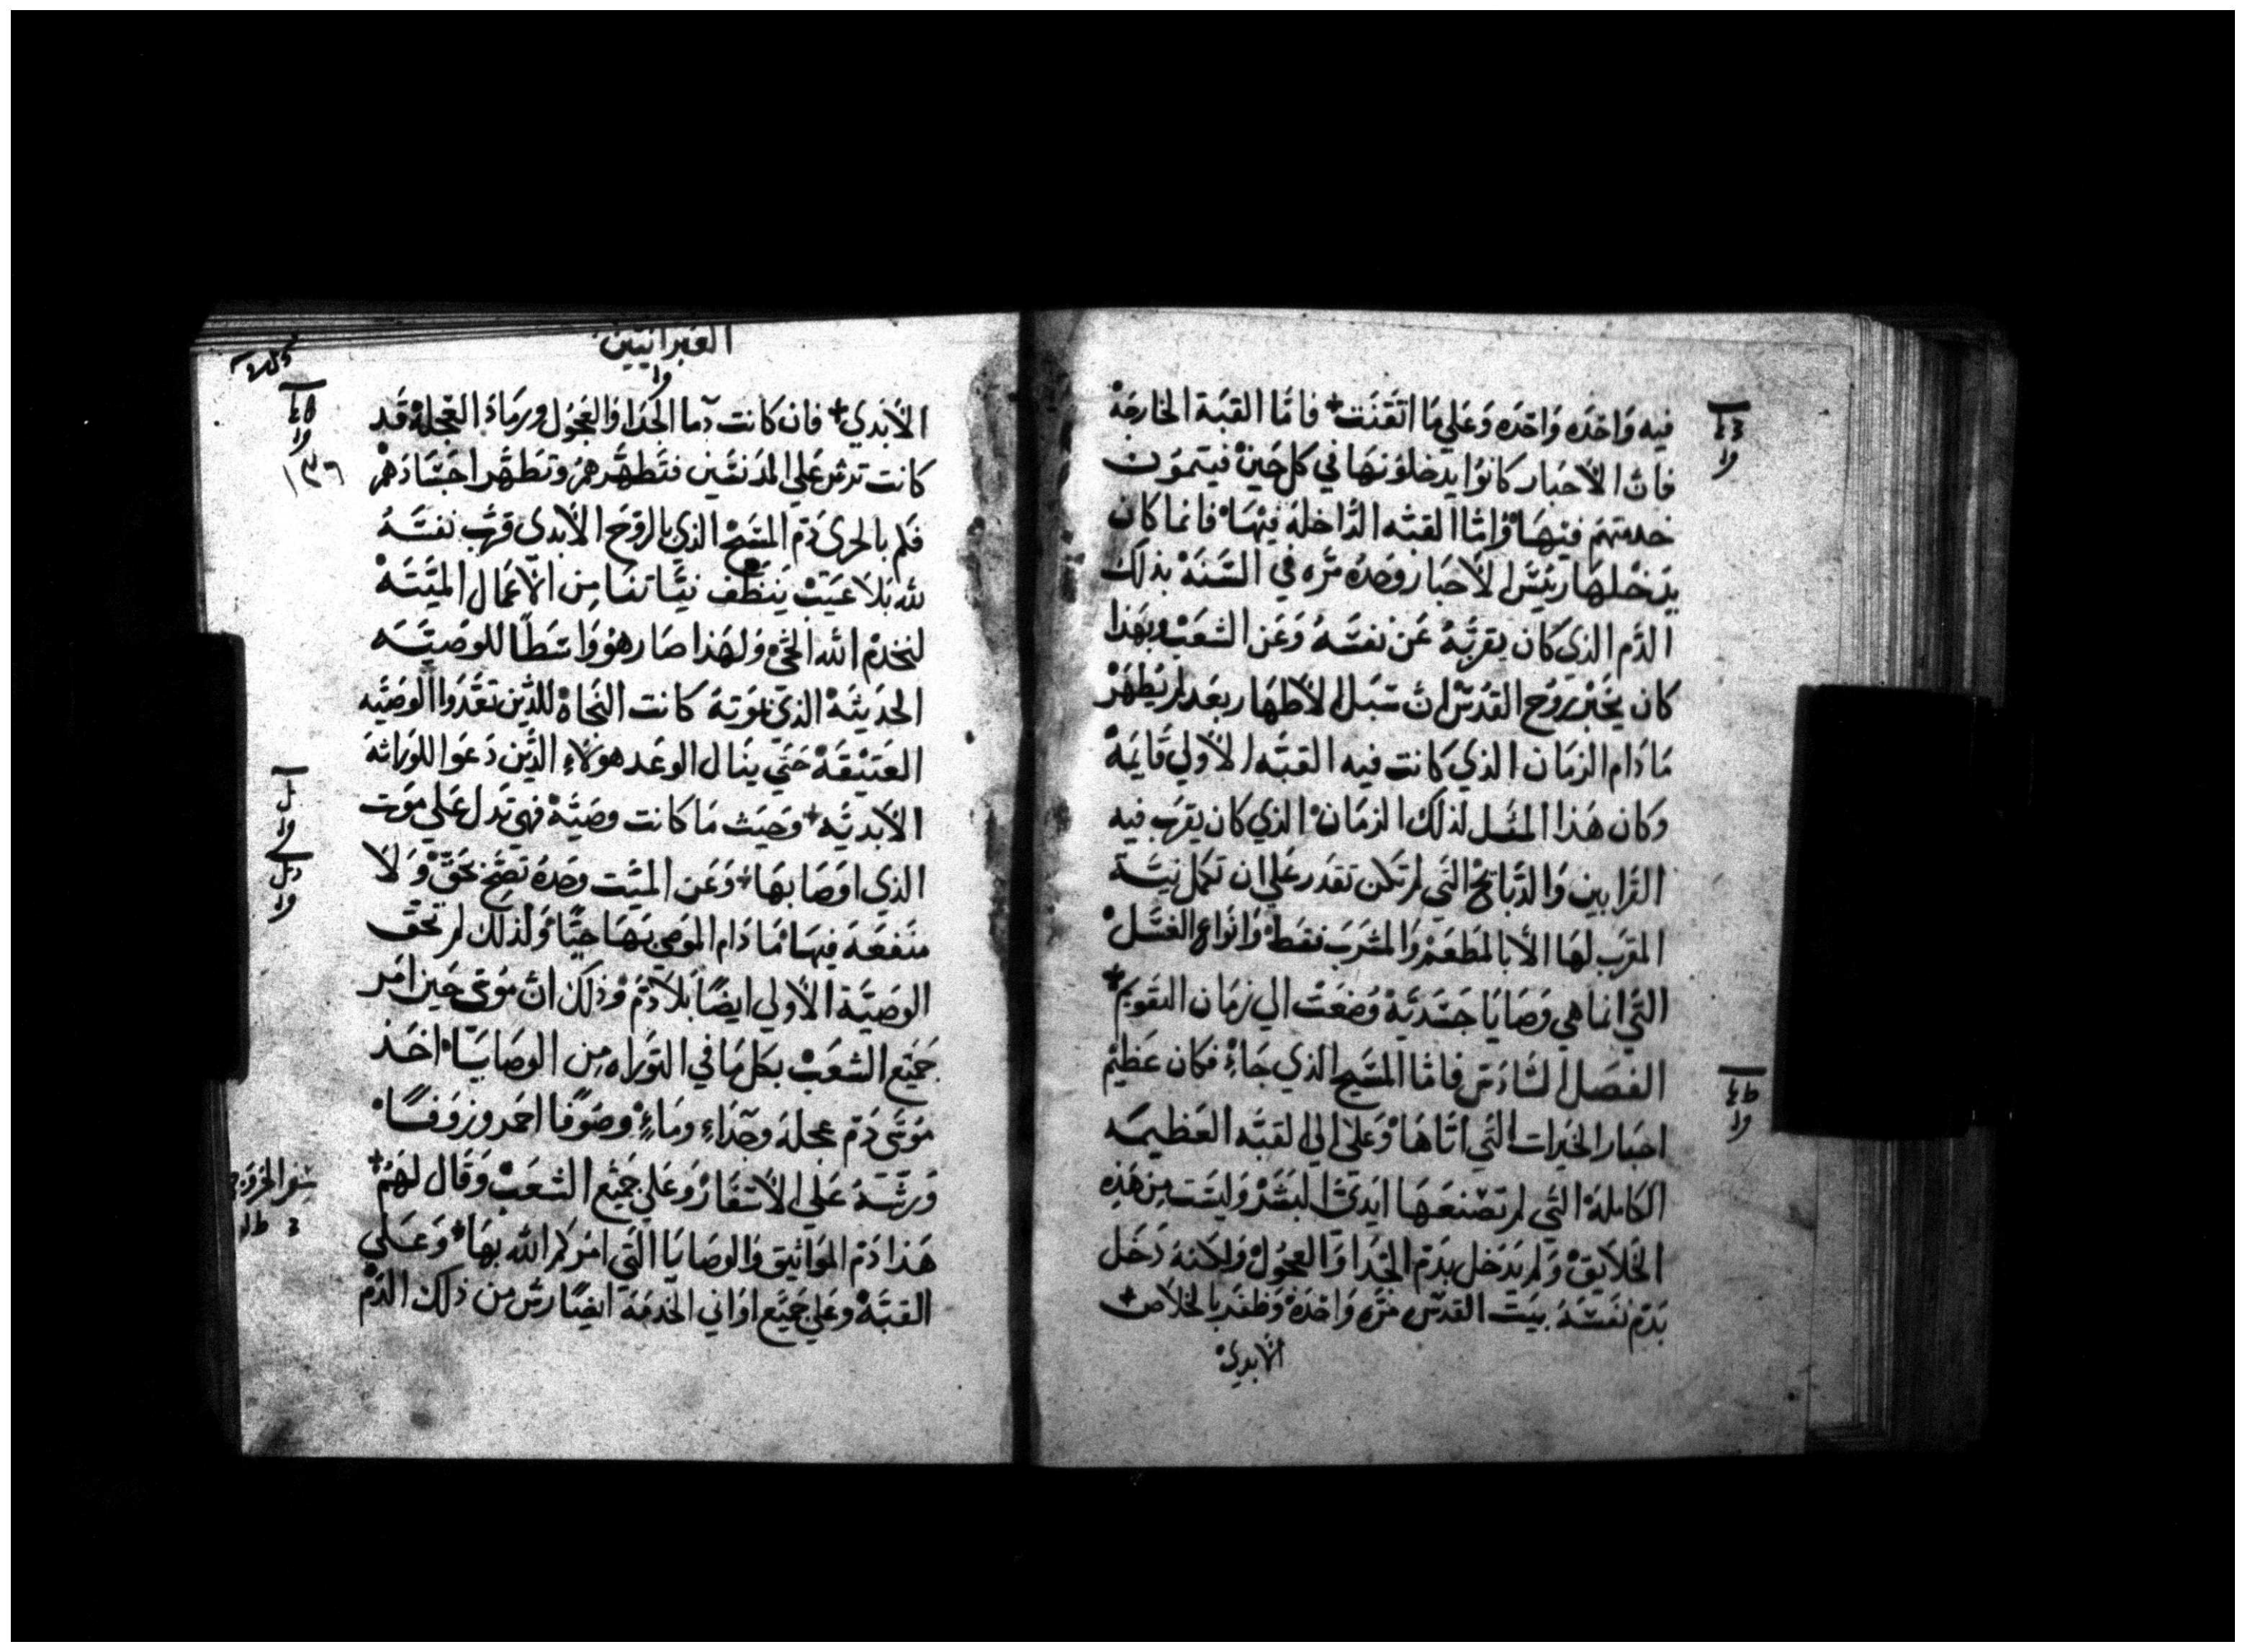 فيه واحده واحده وعلي ما اتقنت + فاما القبة الخارجة
فان الأحبار كانوا يدخلونها في كل حين فيتمون
خدمتهم فيها واما القبه الداخلة فيها فانما كان
يدخلها رئيس الأحبار وحده مره في السنة بذلك
الدم الذي كان يقربه عن نفسه وعن الشعب وبهذا
كان يخبر روح القدس ان سبل الأطهار بعد لم يظهر
ما دام الزمان الذي كانت فيه القبه الأولي قايمة
وكان هذا المثل لذلك الزمان الذي كان يقرب فيه
القرابين والدبايح التي لم تكن تقدر علي ان تكمل نية
المقرب لها الأ بالمطعم والمشرب فقط وانواع الغسل
التي انما هي وصايا جسدية وضعت الي زمان التقويم +
الفصل السادس فاما المسيح الذي جاء فكان عظيم
احبار الخيرات التي اتاها وعلى الي القبه العظيمه
الكاملة التي لم تصنعها ايدي البشر وليست من هذه
الخلايق ولم يدخل بدم الجدا والعجول ولكنه دخل
بدم نفسه بيت القدس مره واحدة وظفر بالخلاص +
الأبدي
العبرانيين
الأبدي + فان كانت دما الجدا والعجول ورماد العجلة قد
كانت ترش علي المدنسين فتطهرهم وتطهر اجسادهم
فكم بالحرى دم المسيح الذي بالروح الأبدى قرب نفسه
لله بلا عيب ينظف نياتنا من الأعمال الميتة
لنخدم الله الحي ولهذا صار هو واسطا للوصيه
الحديثة الذي بموته كانت النجاة للذين تعدوا الوصيه
العتيقة حتي ينال الوعد هولاء الذين دعوا للوراثة
الأبديه + وحيث ما كانت وصية فهي تدل علي موت
الذي اوصا بها + وعن الميت وحده تصح بحق ولا
منفعة فيها ما دام الموصي بها حيا ولذلك لم تحق
الوصية الأولي ايضا بلا دم وذلك ان موسى حين امر
جميع الشعب بكل ما في التوراه من الوصايا اخذ
موسى دم عجلة وجداء وماء وصوفا احمر وزوفا
ورشه علي الأسفار وعلي جميع الشعب وقال لهم +
هذا دم المواثيق والوصايا التي امركم الله بها + وعلي
القبة وعلي جميع اواني الخدمة ايضا رش من ذلك الدم
سفر الخروج